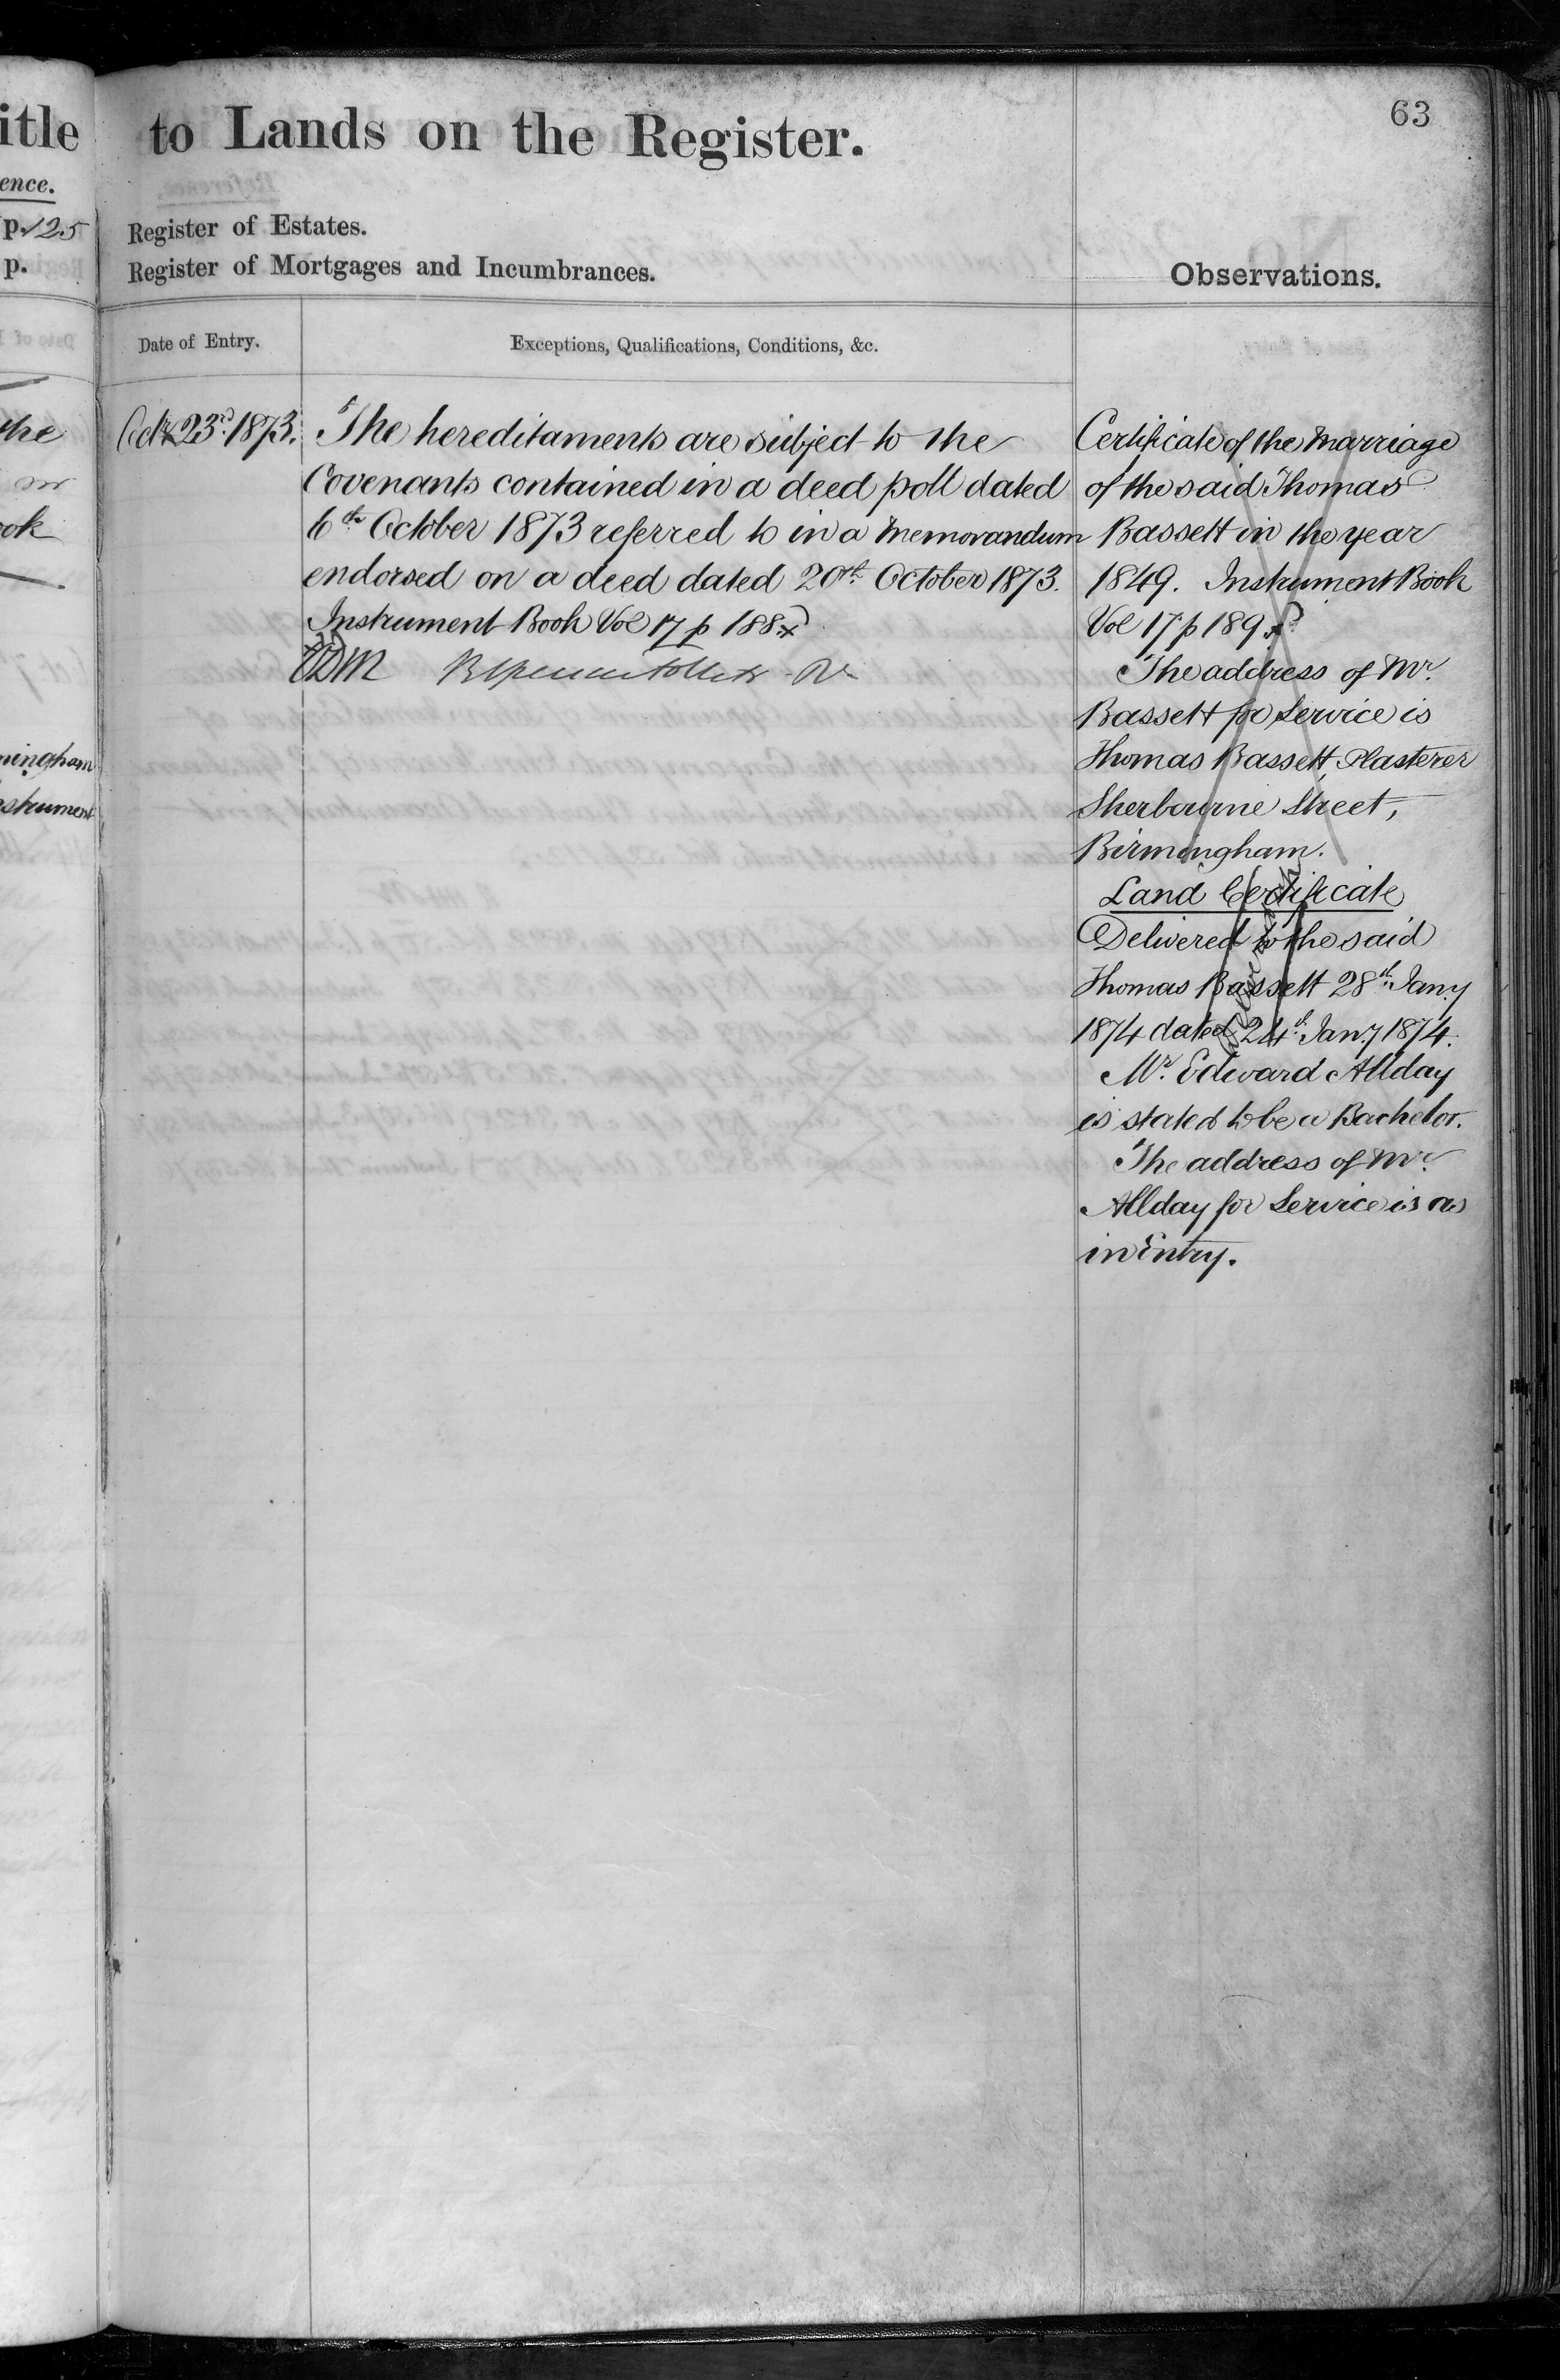 itle
ence.
p. 125
p.
the
ook
ningham
nstrument
to Lands on the Register.
63
Register of Estates.
Register of Mortgages and Incumbrances.
Observations.
Date of Entry.
Exceptions, Qualifications, Conditions, &c.
Octr 23rd 1873.
The hereditaments are subject to the
Covenants contained in a deed poll dated
6th October 1873 referred to in a Memorandum
endorsed on a deed dated 20th October 1873.
Instrument Book Vol 17 p 188.
Certificate of the Marriage
of the said Thomas
Bassett in the year
1849. Instrument Book
Vol 17 p 189.
The address of Mr.
Bassett for Service is
Thomas Bassett, Plasterer
Sherbourne Street,
Birmingham.
Land Certificate
Delivered to the said
Thomas Bassett 28th Jany
1874 dated 24th Jany 1874.
Mr. Edward Allday
is stated to be a Bachelor.
The address of Mr.
Allday for Service is as
in Entry.